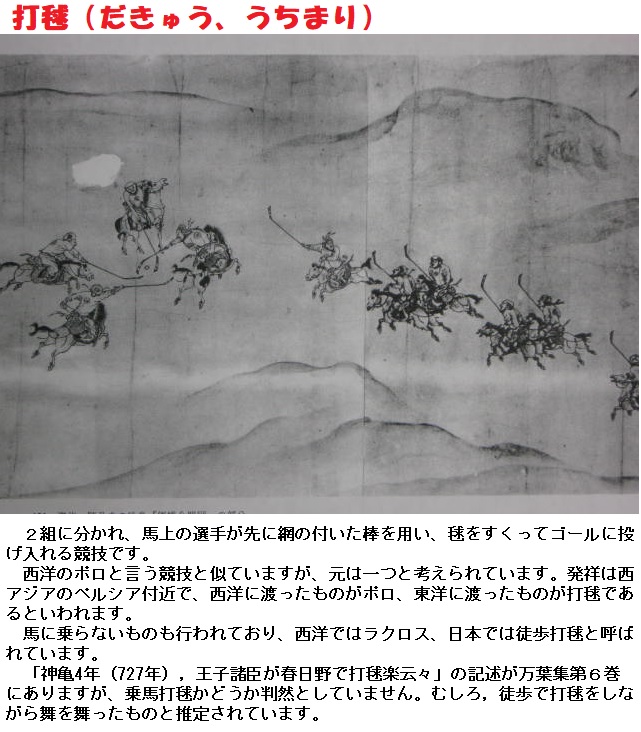 打毬（だきゅう、うちまり）
２組に分かれ、馬上の選手が先に網の付いた棒を用い、毬をすくってゴールに投
げ入れる競技です。
西洋のポロと言う競技と似ていますが、元は一つと考えられています。発祥は西
アジアのペルシア付近で、西洋に渡ったものがポロ、東洋に渡ったものが打毬であ
るといわれます。
馬に乗らないものも行われており、西洋ではラクロス、日本では徒歩打毬と呼ば
れています。
「神亀4年（727年），王子諸臣が春日野で打毬楽云々」の記述が万葉集第６巻
にありますが、乗馬打毬かどうか判然としていません。むしろ，徒歩で打毬をしな
がら舞を舞ったものと推定されています。